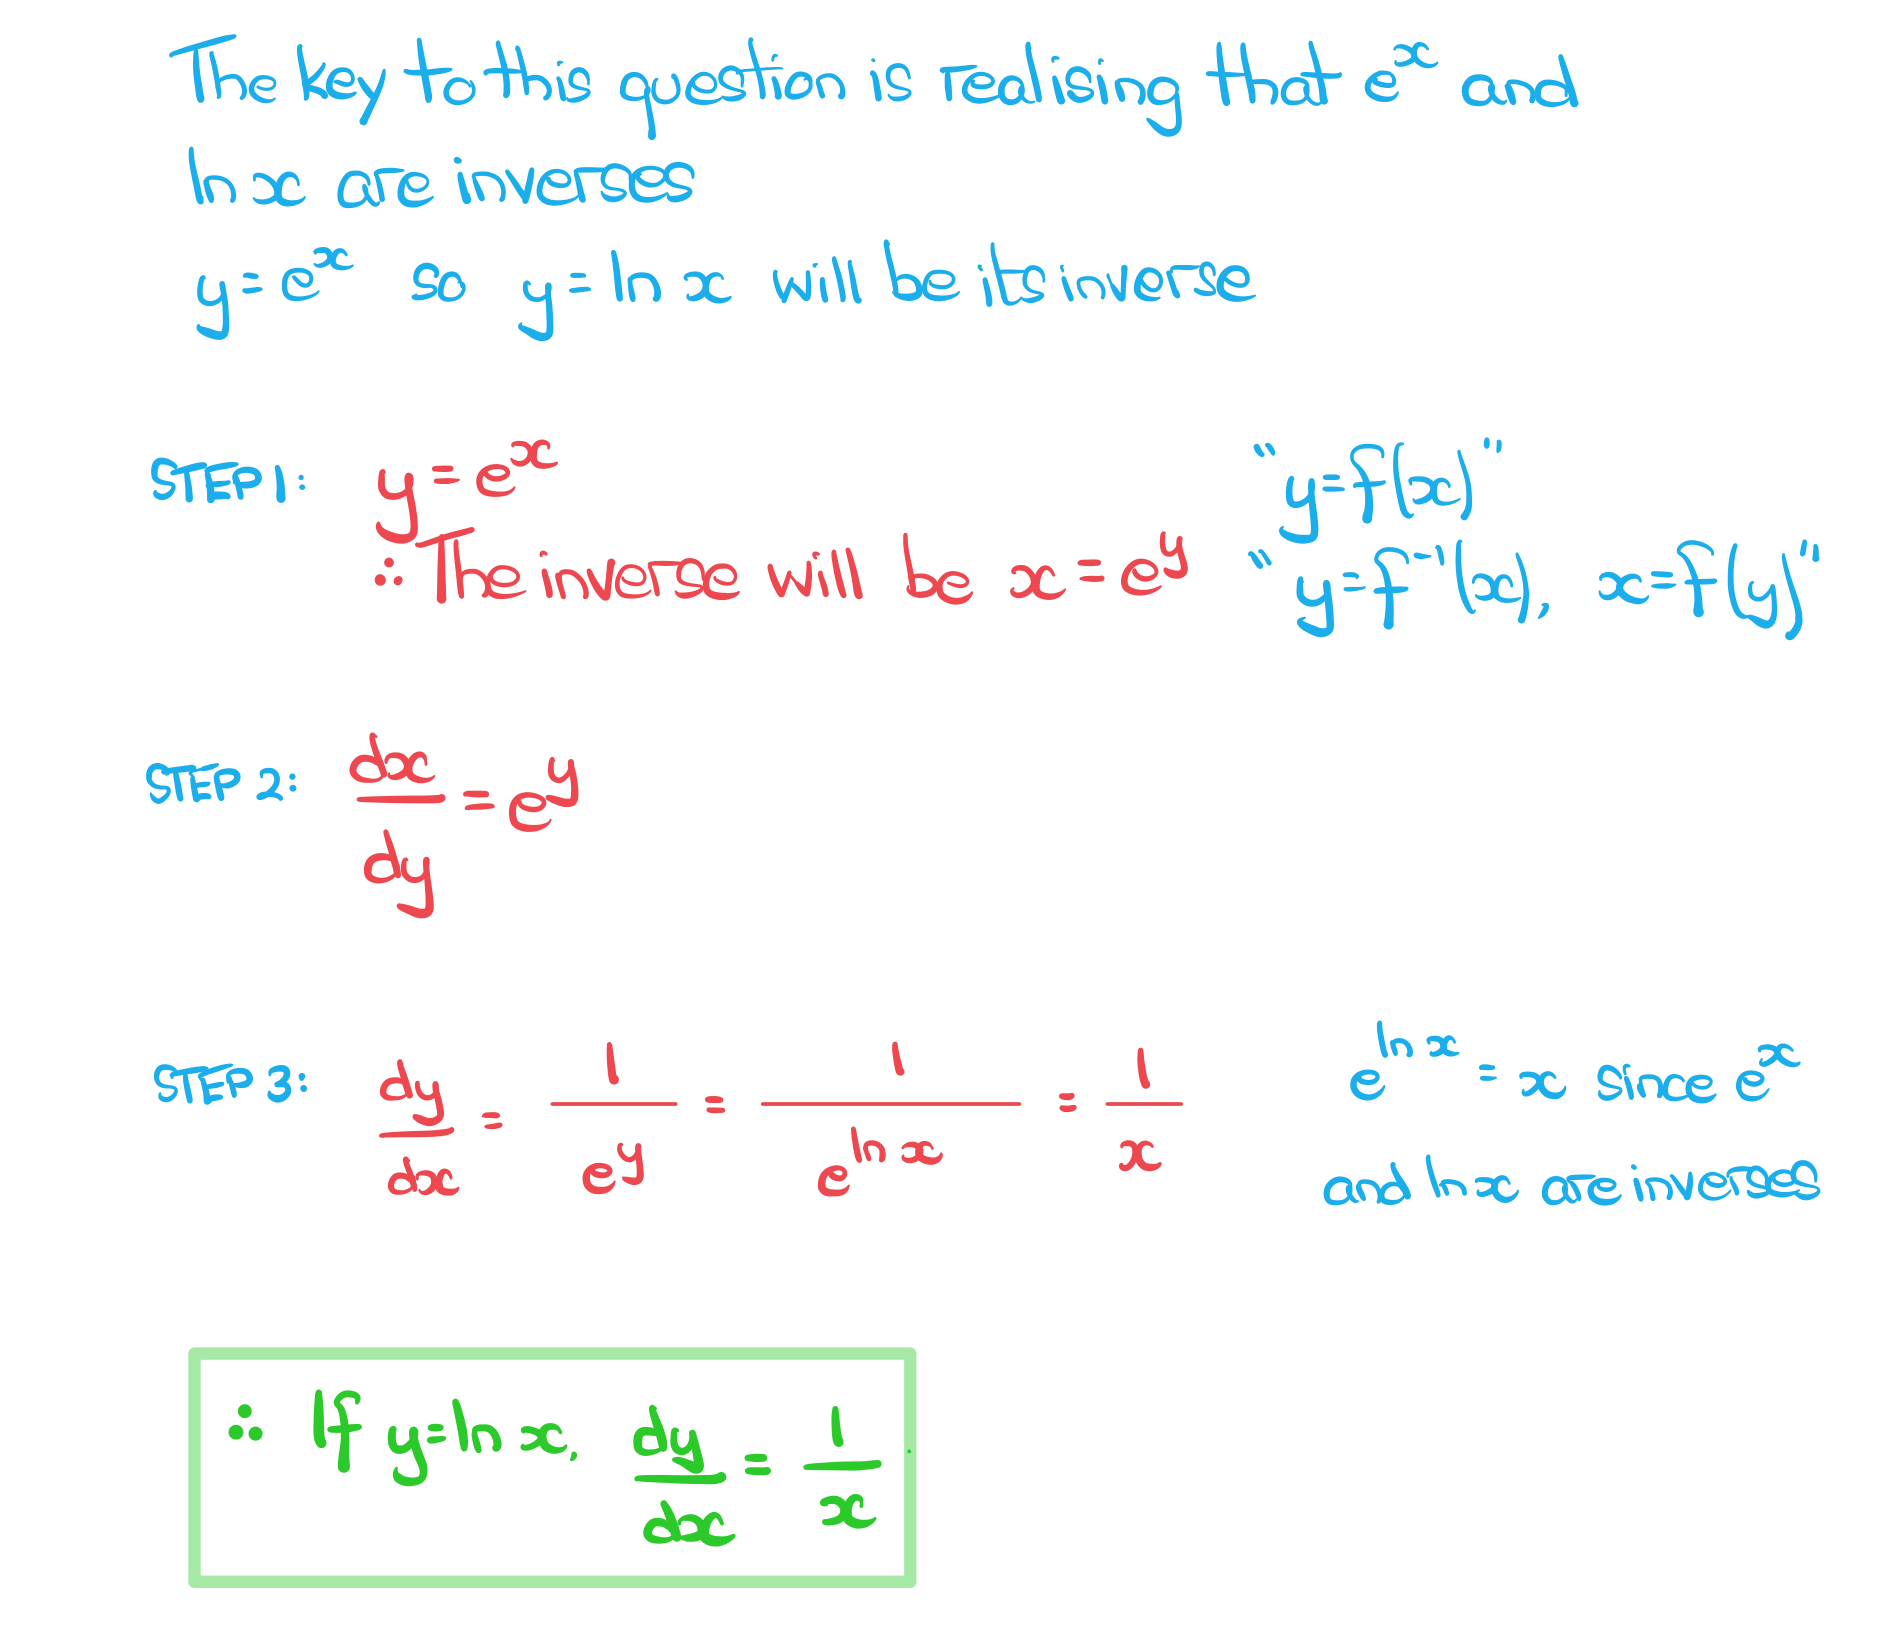 The key to this question is realising that e^x and
ln x are inverses
y = e^x so y = ln x will be its inverse
STEP 1: y = e^x "y = f(x)"
∴ The inverse will be x = e^y "y = f^-1(x), x = f(y)"
STEP 2: dx/dy = e^y
STEP 3: dy/dx = 1/e^y = 1/e^(ln x) = 1/x e^(ln x) = x since e^x
and ln x are inverses
∴ If y = ln x, dy/dx = 1/x